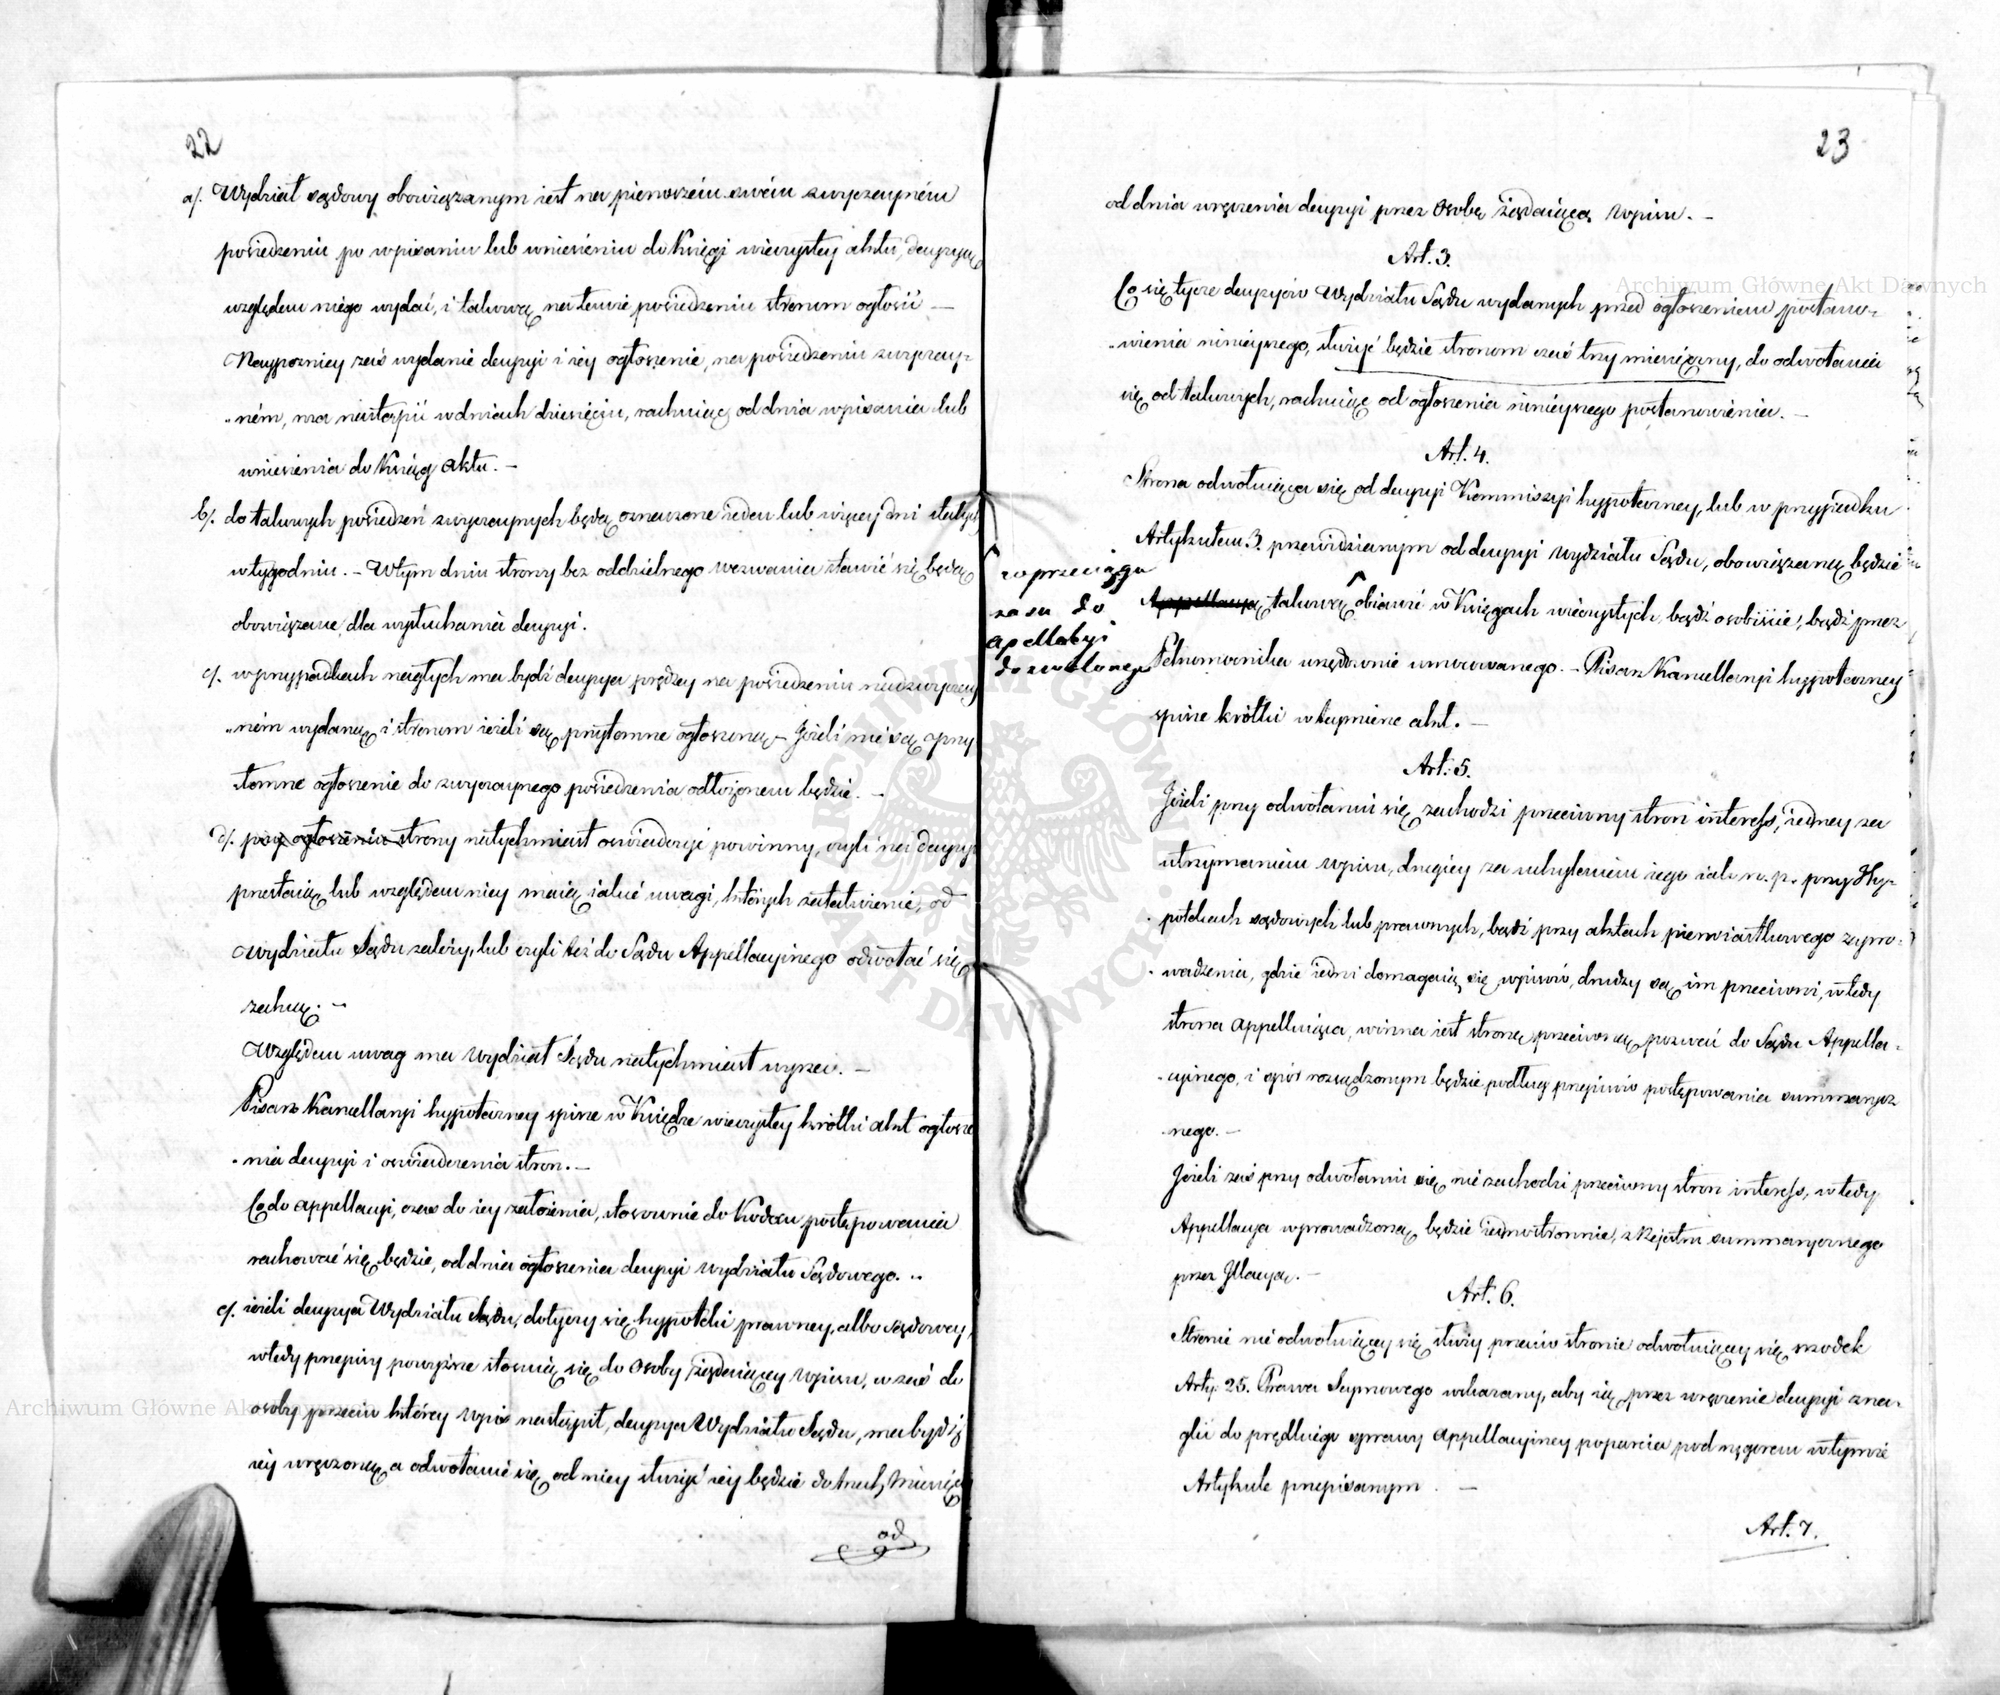 22
a/. Wydział sądowy obowiązanym iest na pierwszém swém zwyczayném
posiedzeniu po wpisaniu lub wniesieniu do Księgi wieczystey aktu, decyzyą
względem niego wydać, i takową na temże posiedzeniu stronom ogłosić —
Naypozniey zaś wydanie decyzyi i iey ogłoszenie, na posiedzeniu zwyczay-
„ném, ma nastąpić w dniach dziesięciu, rachuiąc od dnia wpisania lub
wniesienia do Księg aktu. —
b/. do takowych posiedzeń zwyczaynych będą oznaczone ieden lub więcey dni stałych
w tygodniu. — W tym dniu strony bez oddzielnego wezwania stawić się będą
obowiązane, dla wysłuchania decyzyi.
c/. w przypadkach nagłych ma bydź decyzya prędzey na posiedzeniu nadzwyczay
„ném wydaną i stronom ieżeli są przytomne ogłoszoną — Jeżeli nie są przy
tomne ogłoszenie do zwyczaynego posiedzenia odłożonem będzie. —
d/. przy ogłoszeniu strony natychmiast oświadczyć powinny, czyli na decyzyi
przestaią lub względem niey maią iakie uwagi, których załatwienie, od
Wydziału Sądu zależy, lub czyli też do Sądu Appellacyinego odwołać się
zechcą. —
Względem uwag ma Wydział Sądu natychmiast wyrzec. —
Pisarz Kancellaryi hypoteczney spisze w Księdze wieczystey krótki akt ogłosze
„nia decyzyi i oswiadczenia stron. —
Co do appellacyi, czas do iey założenia, stosownie do Kodexu postępowania
rachować się będzie, od dnia ogłoszenia decyzyi Wydziału Sądowego. „
e/. ieżeli decyzya Wydziału Sądu, dotyczy się hypoteki prawney, albo sądowey,
wtedy przepisy powyższe stosuią się do Osoby żądaiącey wpisu, w zaś do
osoby przeciw którey wpis nastąpił, decyzya Wydziału Sądu, ma bydź
iey wręczoną, a odwołanie się od niey służyć iey będzie do trzech Miesięcy
od
23
od dnia wręczenia decyzyi przez Osobę żądaiącą wpisu. —
Art. 3.
Co się tycze decyzyów Wydziału Sądu wydanych przed ogłoszeniem postano-
„wienia ninieyszego, służyć będzie stronom czas trzymiesięczny, do odwołania
się od takowych, rachuiąc od ogłoszenia ninieyszego postanowienia. —
Art. 4.
Strona odwołuiąca się od decyzyi Kommissyi hypoteczney, lub w przypadku
Artykułem 3. przewidzianym od decyzyi Wydziału Sądu, obowiązaną będzie
w przeciągu
czasu do
apellacyi
dozwolonego
Appellacyą takową obiawić w Księgach wieczystych, bądź osobiście, bądź przez
Pełnomocnika urzędownie umocowanego. — Pisarz Kancellaryi hypoteczney
spisze krótki w tey mierze akt. —
Art. 5.
Jeżeli przy odwołaniu się zachodzi przeciwny stron interess, iedney za
utrzymaniem wpisu, drugiey za uchyleniem iego iak n. p. przy Hy-
potekach sądowych lub prawnych, bądź przy aktach pierwiastkowego zapro-
„wadzenia, gdzie iedni domagaią się wpisów, drudzy są im przeciwni, wtedy
strona appelluiąca, winna iest stronę przeciwną pozwać do Sądu Appella-
„cyinego, i spór rozsądzonym będzie podług przepisów postępowania summarycz
nego. —
Jeżeli zaś przy odwołaniu się nie zachodzi przeciwny stron interess, wtedy
Appellacya wprowadzoną będzie iednostronnie, z Rejestru summarycznego
przez Illacyą. —
Art. 6.
Stronie nie odwołuiącey się służy przeciw stronie odwołuiącey się srodek
Arty: 25. Prawa Seymowego wskazany, aby ią przez wręczenie decyzyi zna-
glić do prędkiego sprawy Appellacyiney poparcia pod rygorem w tymże
Artykule przepisanym. —
Art. 7.
Archiwum Główne Akt Dawnych
Archiwum Główne Akt Dawnych
ARCHIWUM GŁÓWNE AKT DAWNYCH